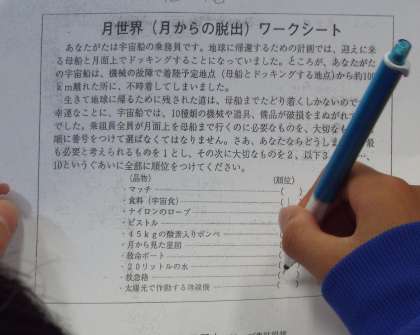 月世界（月からの脱出）ワークシート
あなたがたは宇宙船の乗務員です。地球に帰還するための計画では、迎えに来
る母船と月面上でドッキングすることになっていました。ところが、あなたがた
の宇宙船は、機械の故障で着陸予定地点（母船とドッキングする地点）から約100
km離れた所に、不時着してしまいました。
生きて地球に帰るために残された道は、母船までたどり着くしかないので
幸運なことに、宇宙船では、10種類の機械や道具、備品が破損をまぬがれて
でした。乗組員全員が月面上を母船まで行くのに必要なものを、大切なもの
順に番号をつけて選ばなくてはなりません。さあ、あなたならどうしま 最
も必要と考えられるものを1とし、その次に大切なものを2、以下3、
10というぐあいに全部に順位をつけてください。
（品物） （順位）
・マッチ ( )
・食料（宇宙食） (
・ナイロンのロープ (
・ピストル (
・45kgの酸素入りボンベ (
・月から見た星図 (
・救命ボート (
・20リットルの水 (
・救急箱 ( )
・太陽光で作動する